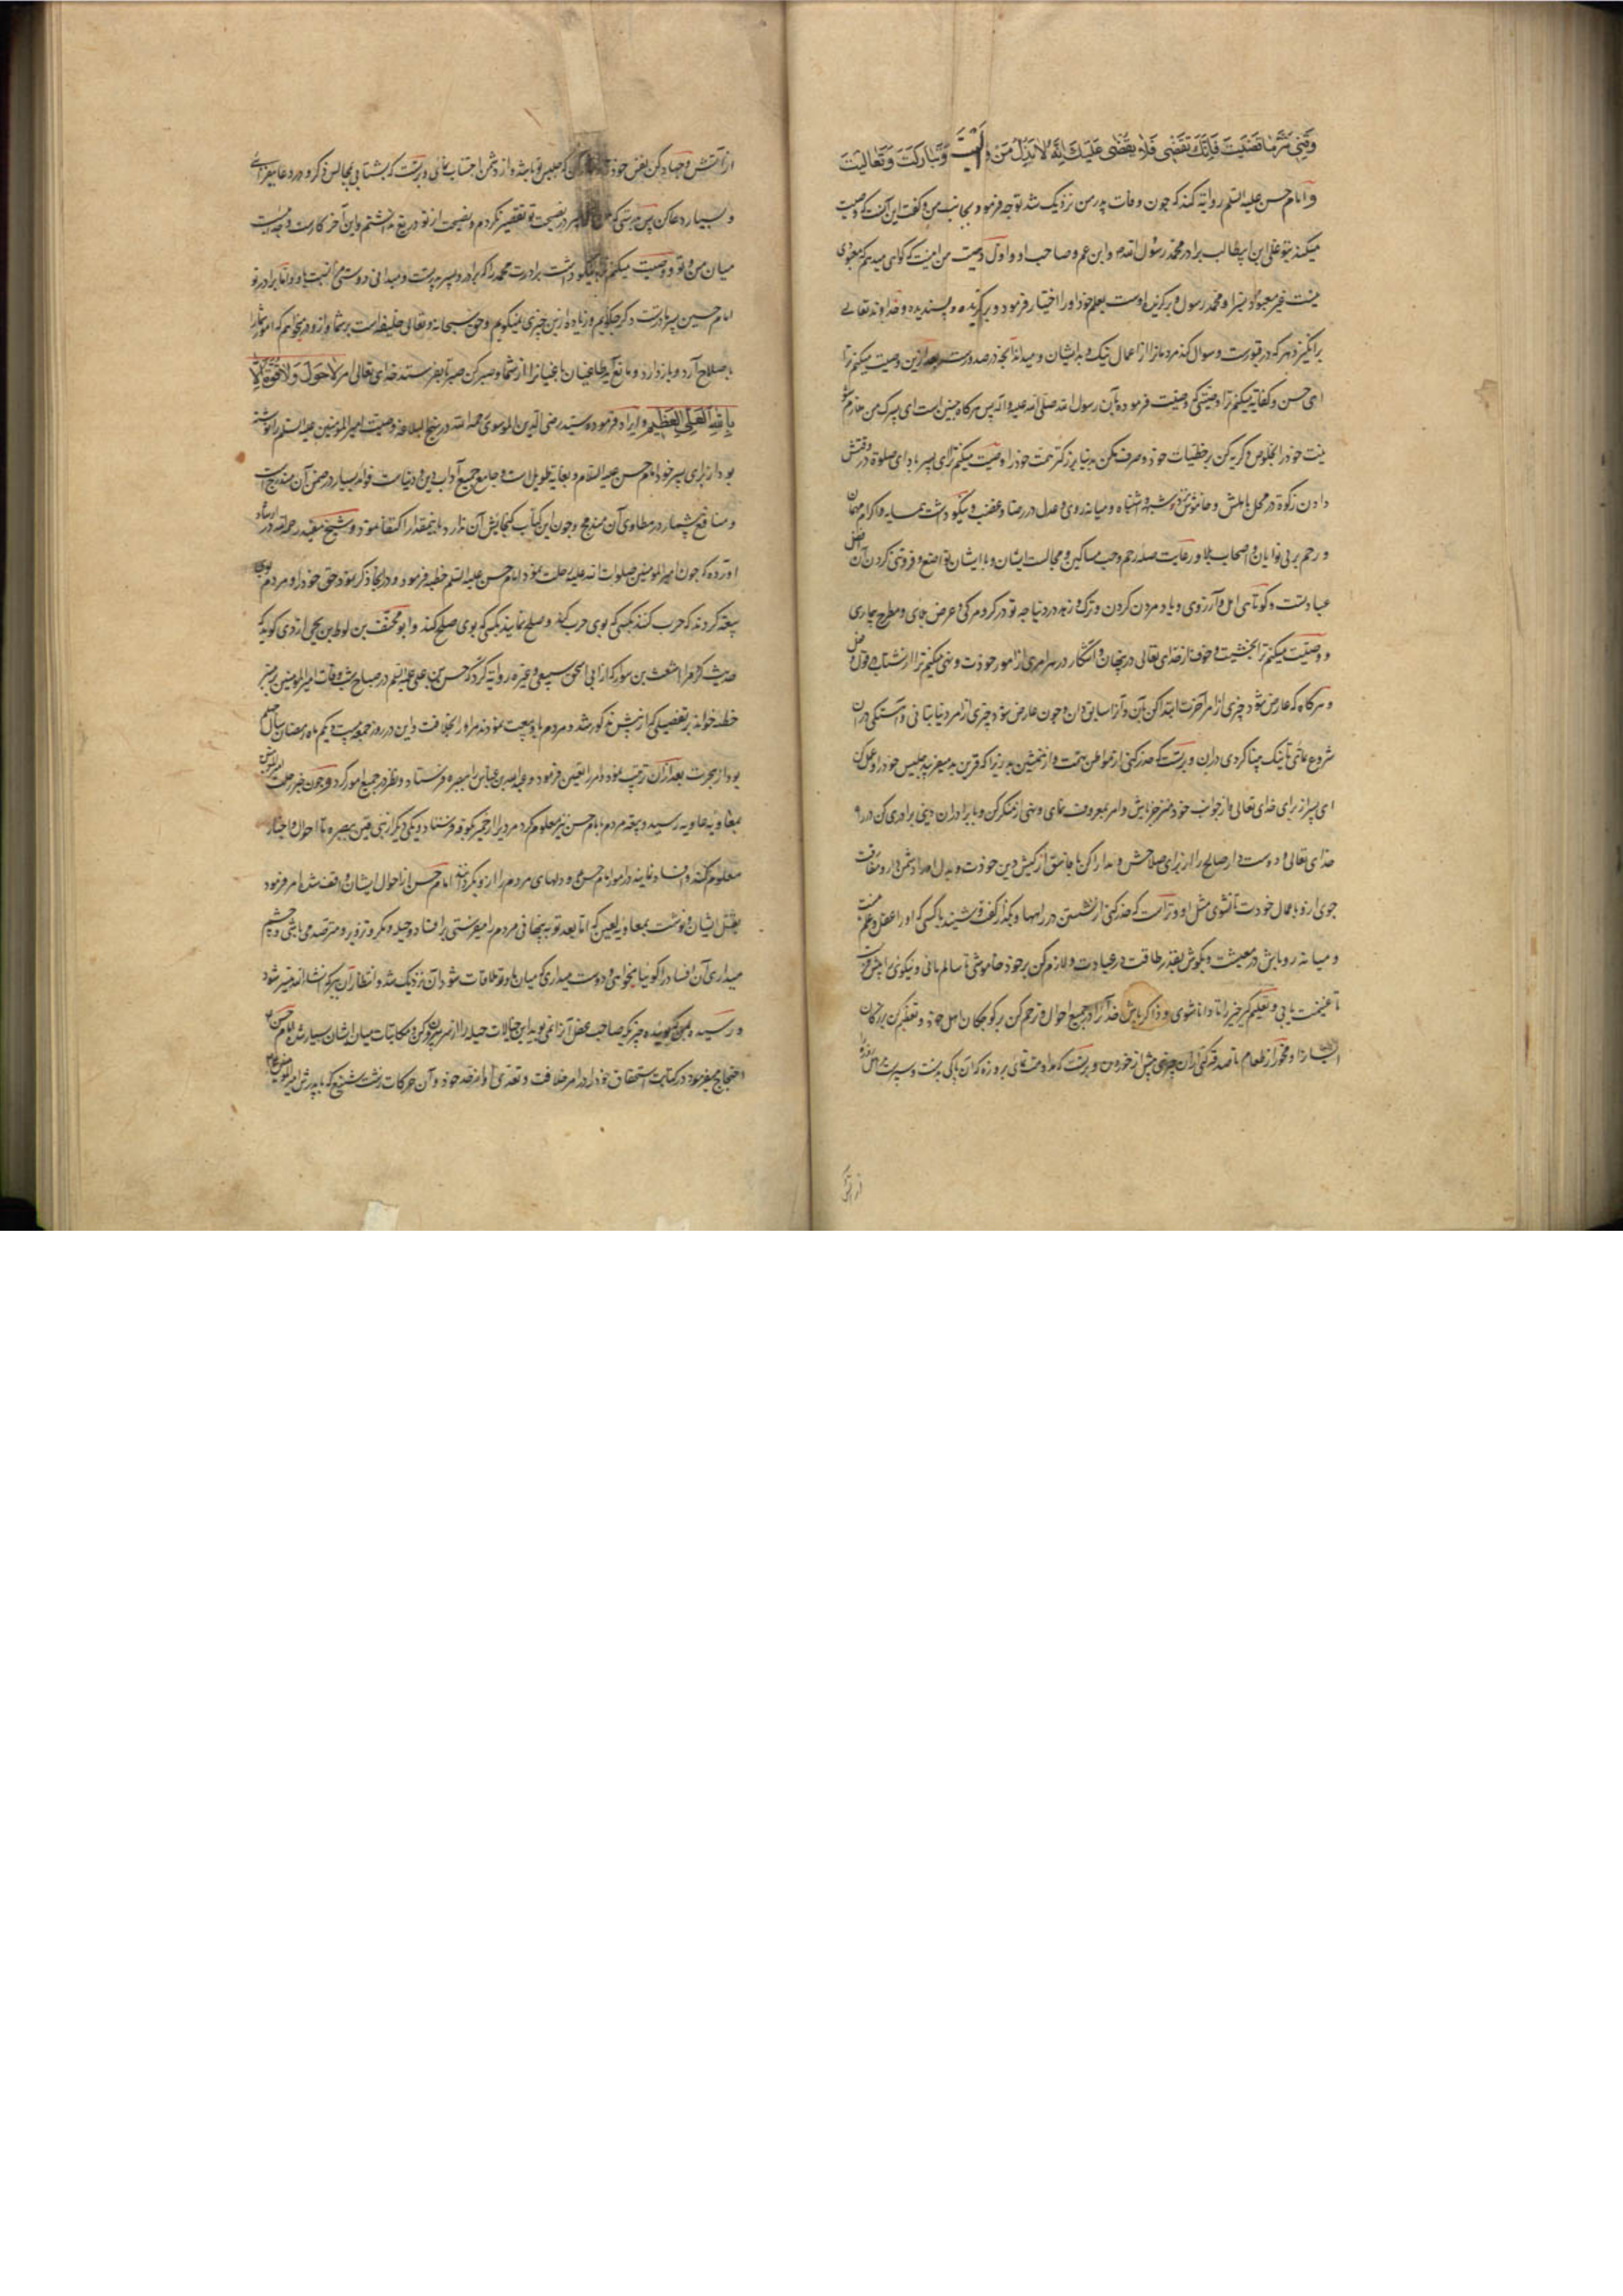 وَقِنِی شَرَّ مَا قَضَیْتَ فَاِنَّكَ تَقْضِی فَلَا یُقْضٰی عَلَیْكَ اِنَّهُ لَا یَذِلُّ مَنْ وَالَیْتَ وَتَبَارَكْتَ وَتَعَالَیْتَ
و امام حسن علیه السلم روایة کند که چون وفات پدر من نزدیک شد توجه فرمود بجانب من و گفت این آنست که وصیت
میکند بتو علی بن ابیطالب برادر محمد رسول الله و ابن عم و صاحب او و اول وصیت من اینست که گواهی میدهم که معبودی
نیست غیر معبود بسزا و محمد رسول و برگزیده اوست بعلم خود او را اختیار فرمود و برگزیده و پسندیده و خداوند تعالی
برانگیزد هر که در قبورست و سوال کند مردمانرا از اعمال نیک و بد ایشان و میداند آنچه در صدورست بعد ازین وصیت میکنم ترا
ای حسن و کفایة میکنم ترا وصیتی که وصیت فرموده بآن رسول الله صلی الله علیه و آله پس هر گاه چنین است ای پسرک من ملازم شو
بیت خود را بخلوص و گریه کن بر خطیئات خود و صرف مکن بدنیا بزرگتر همت خود را وصیت میکنم ترا ای پسر بادای صلوة در وقتش
دادن زکوة در محل باهلش و خاموش بودن نزد شبهه و اشتباه و میانه روی و عدل در رضا و غضب و نیکو داشت همسایه و اکرام مهمان
و رحم بر بی نوایان و اصحاب بلا و رعایت صله رحم و حب مساکین و مجالست ایشان و با ایشان تواضع و فروتنی کردن آن افضل
عبادتست و کوتاهی امل و آرزوی و یاد مردن کردن و ترک و زهد در دنیا چه تو در گرو مرگی و عرض بلای و مطرح بیماری
و وصیت میکنم ترا بخشیت و خوف از خدای تعالی در پنهان و آشکار در هر امری از امور خودت و نهی میکنم ترا از شتاب در قول و فعل
و هر گاه که عارض شود چیزی از امر آخرت ابتدا کن بآن و چون عارض شود چیزی از امر دنیا بتانی و آهستگی در آن
شروع نمای و بر تست که حذر کنی از مواطن تهمت و از همنشین بد زیرا که قرین بد میفریبد جلیس خود را و عمل کن
ای پسر از برای خدای تعالی و از جواب خود منزجر باش و امر بمعروف نمای و نهی از منکر کن و با برادران دینی برادری کن در راه
خدای تعالی و دوست دار صالح را از برای صلاحش و مدارا کن با فاسق از کیش و دین خودت و بدل او را دشمن دار و مفارقت
جوی از و باعمال خودت تا نشوی مثل او و تراست که حذر کنی از نشستن در راهها
و میانه رو باش در معیشت و بکوش بقدر طاقت در عبادت و لازم کن بر خود خاموشی تا سالم مانی و نیکوئی را پیش فرست
تا غنیمت یابی و تعلیم گیر خیر را تا دانا شوی و ذاکر باش خدا را در جمیع احوال و رحم کن بر کوچکان اهل خود و تعظیم کن بزرگان
ایشانرا و مخور از طعام تا صدقه کنی از آن چیزی پیش از خوردن و بر تست که مداومت نمائی بر روزه که آن پاکی بدنست و سپرست
از آتش
از آتش و جهاد کن بنفس خود و از دشمن اجتناب نمای و بر تست که بشتابی بمجالس ذکر و در دعا بیفزائی
و بسیار دعا کن پس بدرستی که من ای پسر در نصیحت تو تقصیر نکردم و نصیحت از تو دریغ نداشتم و این آخر کارست و جدائیست
میان من و تو و وصیت میکنم به نیکو داشت برادرت محمد را که برادر و پسر پدر تست و میدانی دوستی من نسبت باو و اما برادر تو
امام حسین پسر مادر تست دگر چگویم و زیاده ازین چیزی نمیگویم و حق سبحانه و تعالی خلیفه است بر شما و ازو میخواهم که امور شما را
باصلاح آرد و باز دارد و مانع آید طاغیان باغیانرا از شما و صبر کن صبر تا بفرستد خدای تعالی امر لَا حَوْلَ وَلَا قُوَّةَ اِلَّا
بِاللهِ الْعَلِیِّ الْعَظِیمِ و ایراد فرموده سید رضی الدین الموسوی رحمه الله در نهج البلاغه وصیت امیر المومنین علیه السلم را نوشته
بود از برای پسر خود امام حسن علیه السلام و بغایة طویل است و جامع جمیع آداب دین و دنیاست فوائد بسیار در ضمن آن مندرج است
و منافع بیشمار در مطاوی آن مندمج و چون این کتاب گنجایش آن ندارد باینمقدار اکتفا نمود و شیخ مفید رحمه الله در ارشاد
آورده که چون امیر المومنین صلوات الله علیه رحلت نمود امام حسن علیه السلم خطبه فرمود و در آنجا ذکر نمود حق خود را و مردم بوی
بیعة کردند که حرب کنند بکسی که بوی حرب کند و صلح نمایند بکسی که بوی صلح کند و ابو مخنف بن لوط بن یحیی ازدی گوید که
حدیث کرد مرا اشعث بن سوار که از ابی اسحق سبیعی و غیره روایة کرد که حسن بن علی علیه السلم در صباح شب وفات امیر المومنین بر منبر
خطبه خواند بر تفصیلی که از پیش مذکور شد و مردم باو بیعت نمودند مر او را بخلافت و این در روز جمعه بیست و یکم ماه رمضان سال چهلم
بود از هجرت بعد از آن ترتیب نمود و امرا تعیین فرمود و عبد الله بن عباس را ببصره فرستاد و نظر در جمیع امور کرد و چون خبر رحلت امیر المومنین
بمعاویه رسید و بیعة مردم بامام حسن نیز معلوم کرد مردیرا از حمیر بکوفه فرستاد و یکی دیگر از بنی قین ببصره تا احوال و اخبار
معلوم کنند و افساد نمایند در امور امام حسن و دلهای مردم را ازو بگردانند امام حسن از احوال ایشان واقف شد امر فرمود
بقتل ایشان و نوشت بمعاویه لعین که اما بعد تو به پنهانی مردم را میفرستی برای افساد و حیله و مکر و تزویر و مترصد می باشی و چشم
میداری آن افساد را
و رسیده بمن
احتجاج میفرمود در کتابت استحقاق خود را در امر خلافت و تعدی او از حد خود و آن حرکات زشت شنیع که با پدرش امیر المومنین